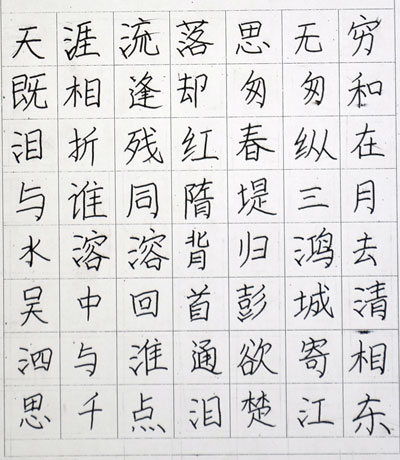 天涯流落思无穷
既相逢却匆匆和
泪折残红春纵在
与谁同隋堤三月
水溶溶背归鸿去
吴中回首彭城清
泗与淮通欲寄相
思千点泪楚江东